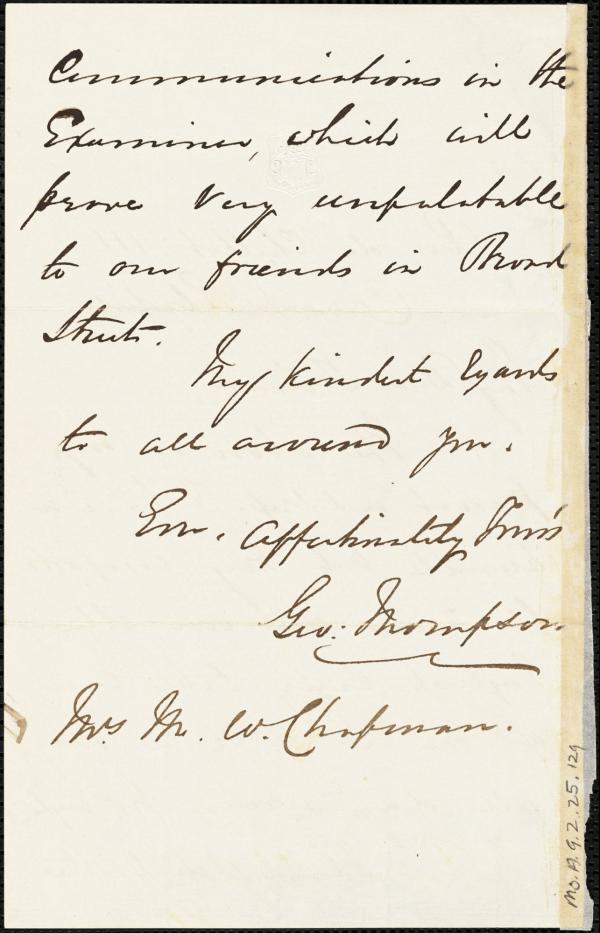 Communications in the
Examiner, which will
prove very unpalatable
to our friends in Broad
Street.
My kindest regards
to all around you.
Ever, affectionately Yours
Geo: Thompson
Mrs M. W. Chapman.
Ms. A. 9. 2. 25. 129